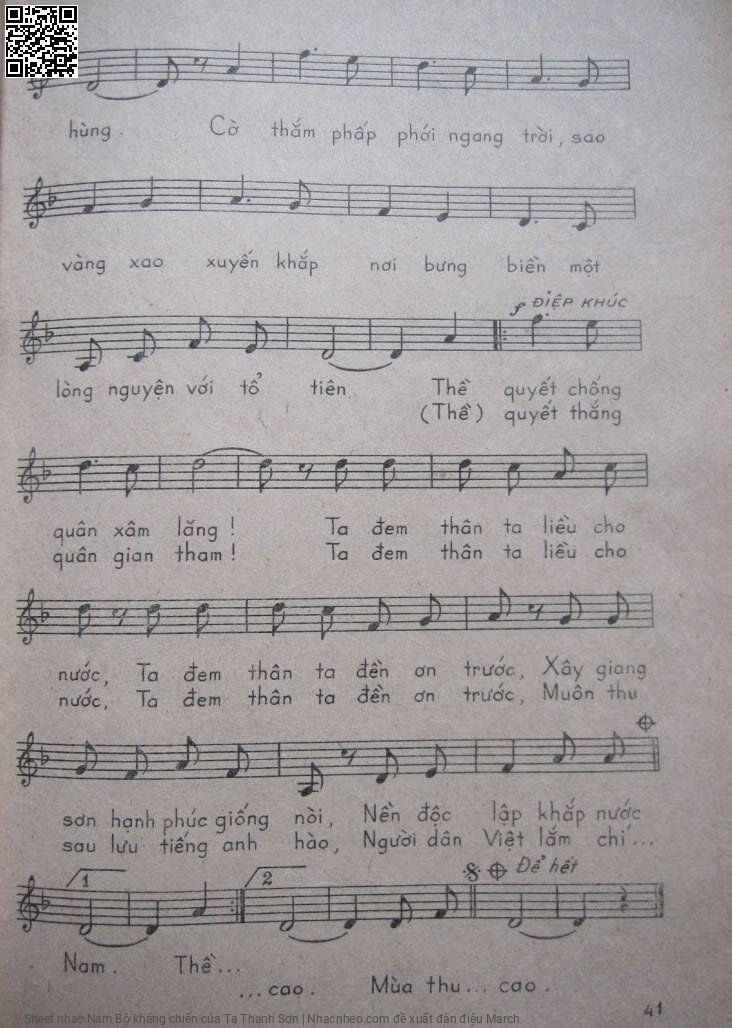 hùng. Cờ thắm phấp phới ngang trời, sao
vàng xao xuyến khắp nơi bưng biền một
f ĐIỆP KHÚC
lòng nguyện với tổ tiên. Thề quyết chống
(Thề) quyết thắng
quân xâm lăng! Ta đem thân ta liều cho
quân gian tham! Ta đem thân ta liều cho
nước, Ta đem thân ta đền ơn trước, Xây giang
nước, Ta đem thân ta đền ơn trước, Muôn thu
sơn hạnh phúc giống nòi, Nền độc lập khắp nước
sau lưu tiếng anh hào, Người dân Việt lắm chí...
1 2 Để hết
Nam. Thề...
...cao. Mùa thu... cao.
41
Sheet nhac Nam Bộ kháng chiến của Tạ Thanh Sơn | Nhacnheo.com đề xuất đàn điệu March